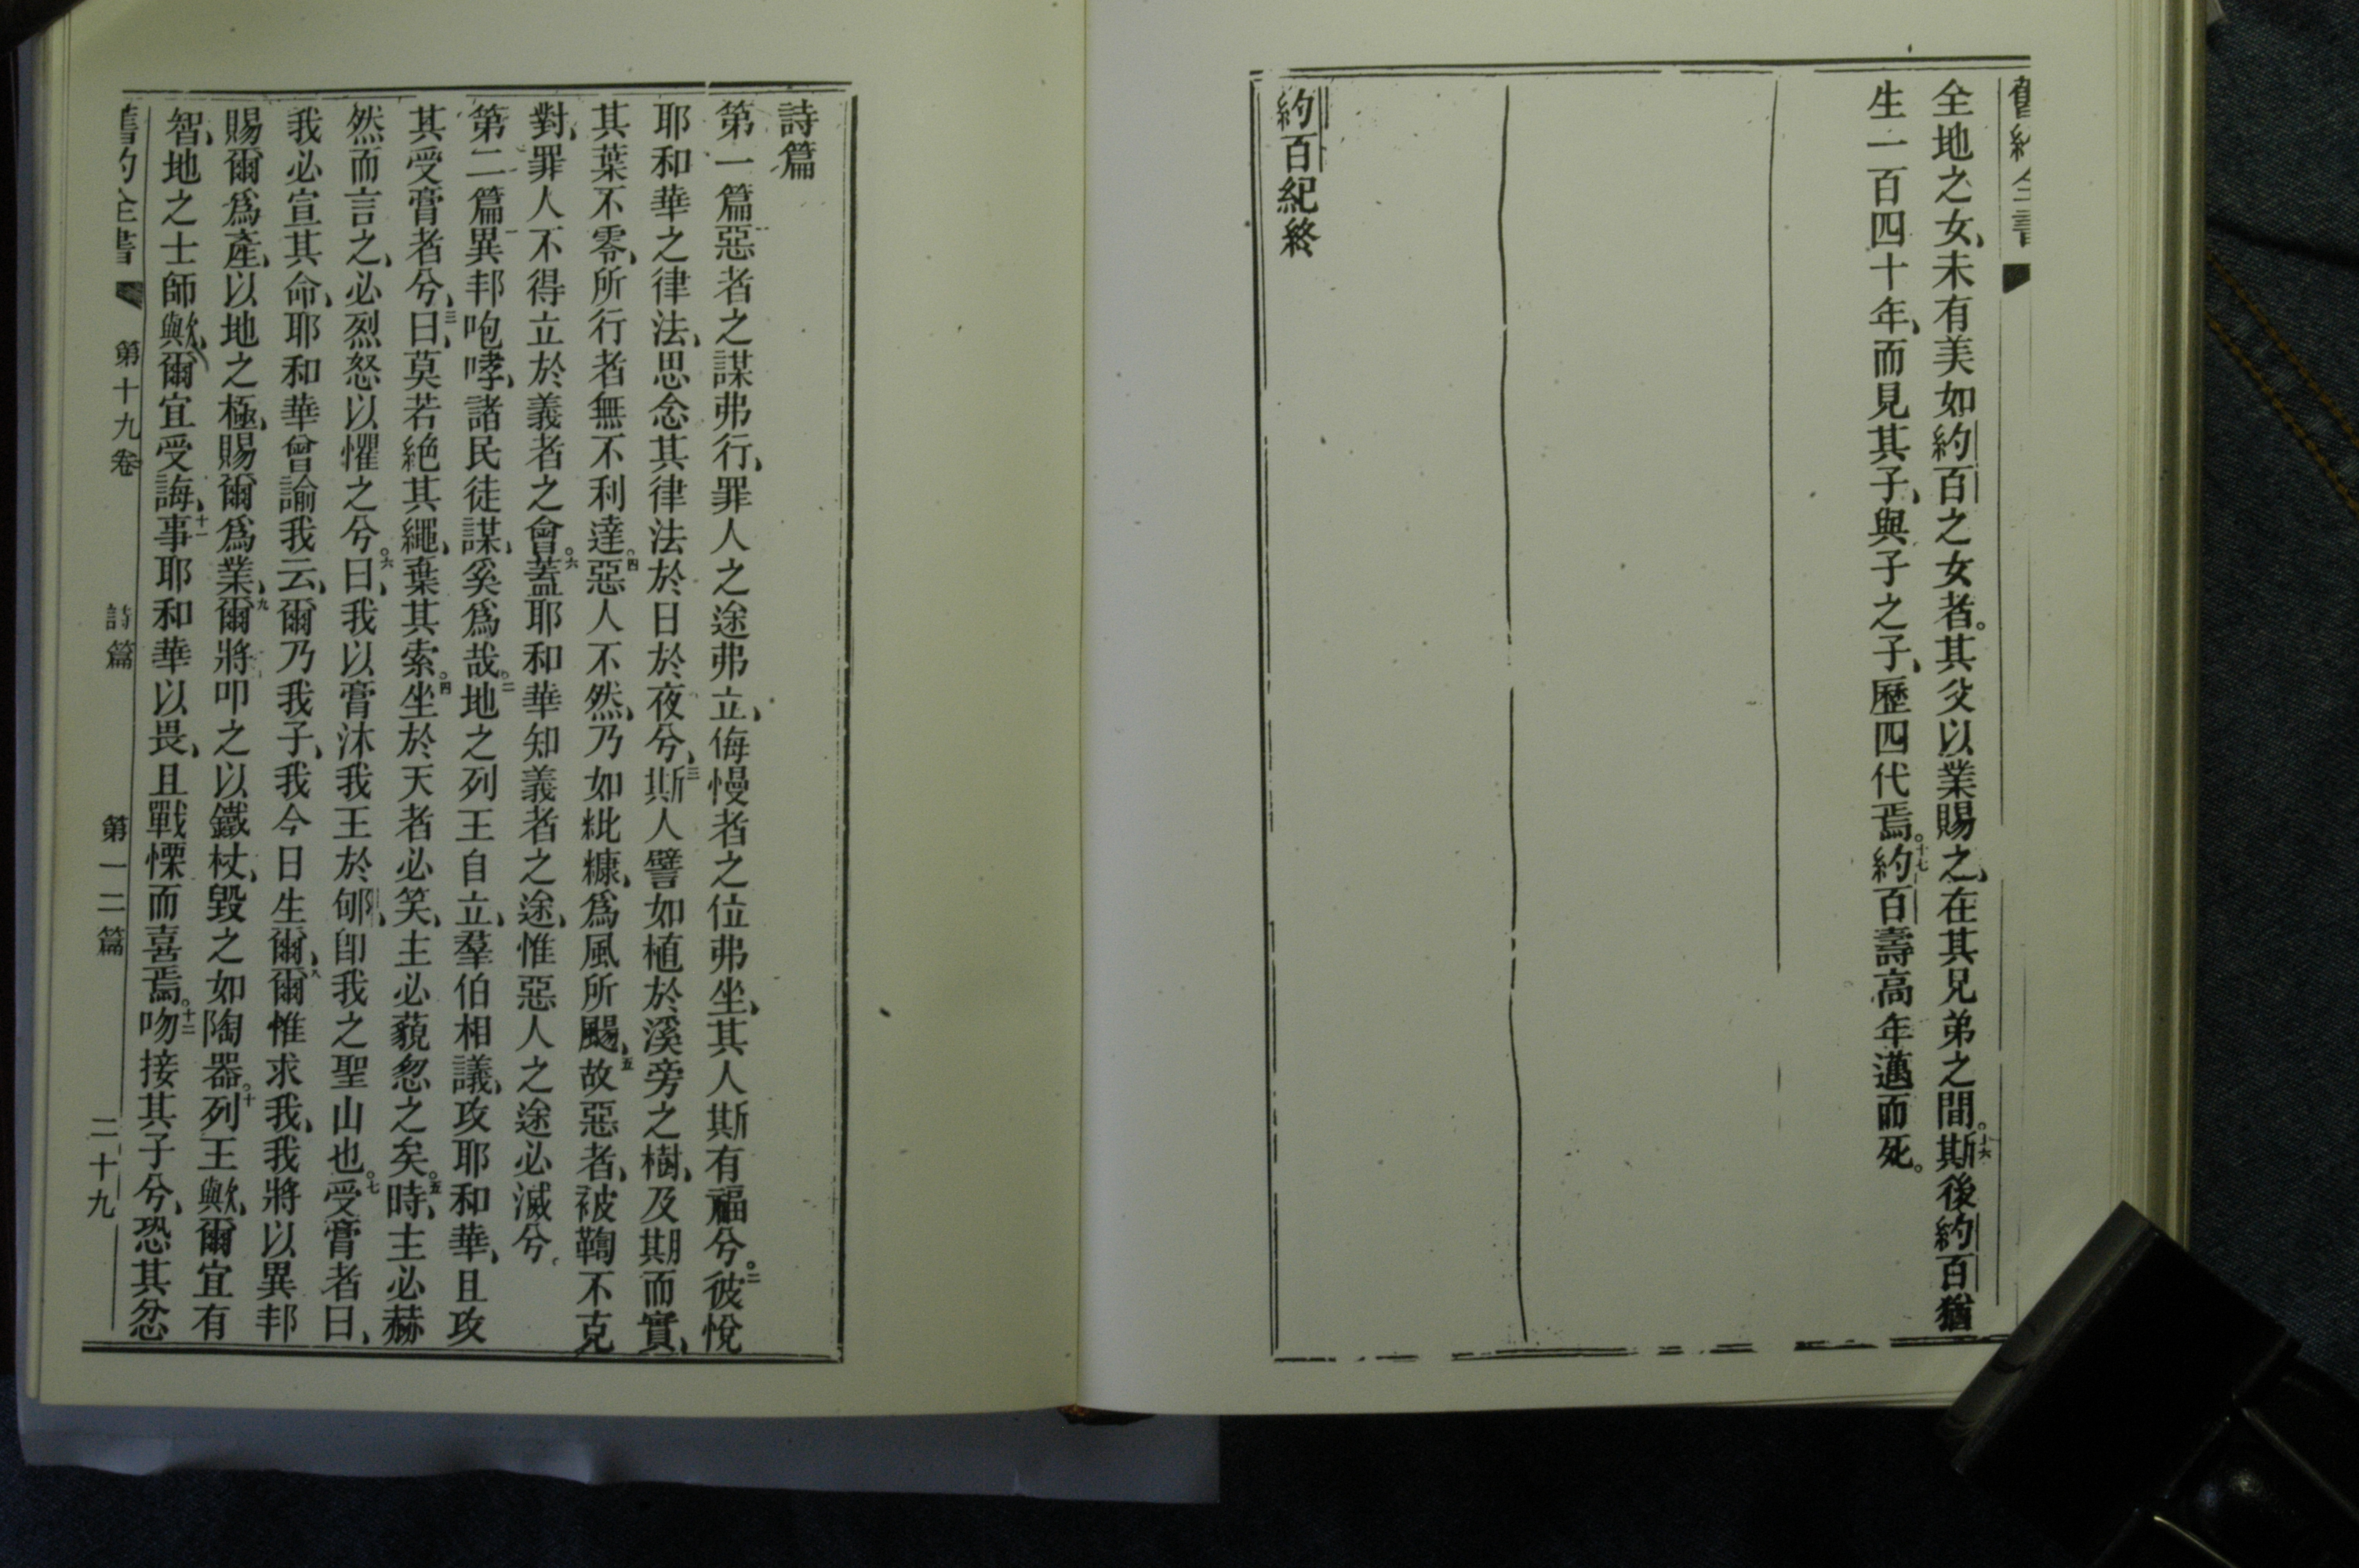 舊約全書
全地之女、未有美如約百之女者。其父以業賜之、在其兄弟之間。十六斯後約百猶
生一百四十年、而見其子、與子之子、歷四代焉。十七約百壽高年邁而死。
約百紀終
詩篇
第一篇惡者之謀弗行、罪人之途弗立、侮慢者之位弗坐、其人斯有福兮。二彼悅
耶和華之律法、思念其律法於日於夜兮、三斯人譬如植於溪旁之樹、及期而實、
其葉不零、所行者無不利達。四惡人不然、乃如粃糠、爲風所颺、五故惡者、被鞫不克
對、罪人不得立於義者之會。六蓋耶和華知義者之途、惟惡人之途必滅兮。
第二篇異邦咆哮、諸民徒謀、奚爲哉。二地之列王自立、羣伯相議、攻耶和華、且攻
其受膏者兮、三曰、莫若絕其繩、棄其索。四坐於天者必笑、主必藐忽之矣。五時、主必赫
然而言之、必烈怒以懼之兮。六曰、我以膏沐我王於郇、卽我之聖山也。七受膏者曰、
我必宣其命、耶和華曾諭我云、爾乃我子、我今日生爾、八爾惟求我、我將以異邦
賜爾爲產、以地之極、賜爾爲業、九爾將叩之以鐵杖、毀之如陶器。十列王歟、爾宜有
智、地之士師歟、爾宜受誨、十一事耶和華以畏、且戰慄而喜焉。十二吻接其子兮、恐其忿
舊約全書 第十九卷 詩篇 第一二篇 二十九